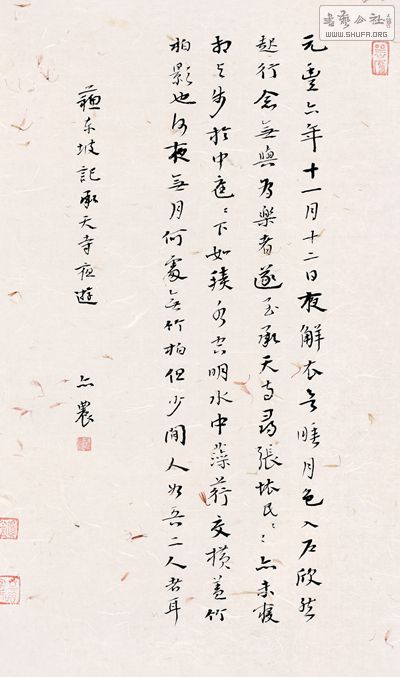 元豐六年十一月十二日夜解衣欲睡月色入戶欣然
起行念無與為樂者遂至承天寺尋張懷民々々亦未寢
相與步於中庭々下如積水空明水中藻荇交橫蓋竹
柏影也何夜無月何處無竹柏但少閒人如吾二人者耳
蘇东坡記承天寺夜遊
亦農
書藝公社
WWW.SHUFA.ORG